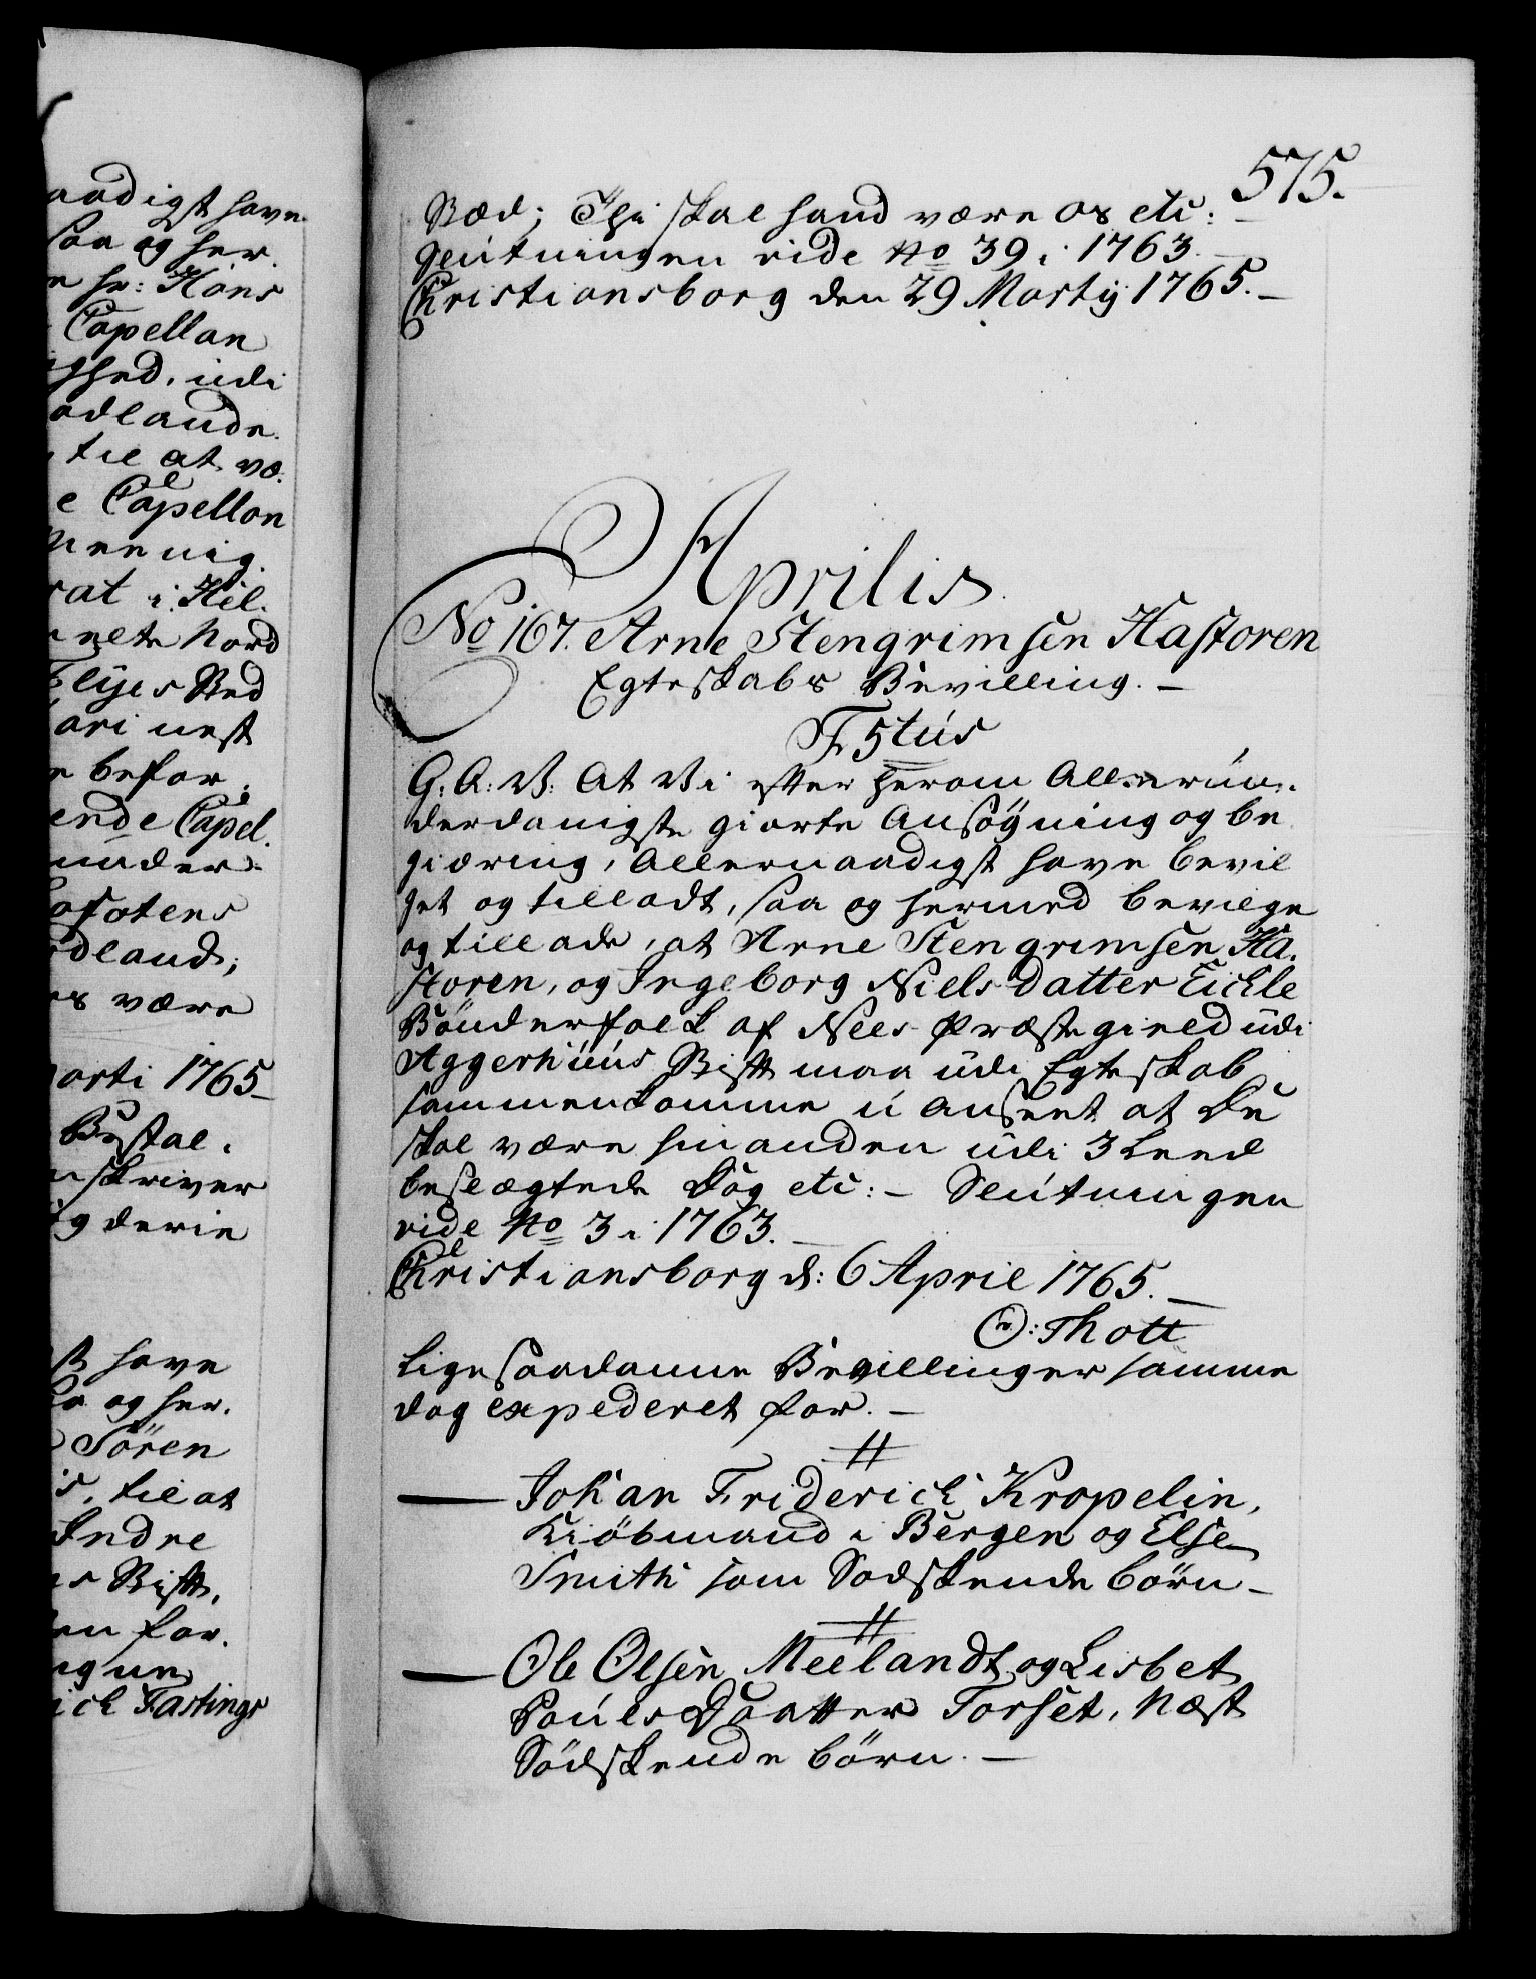 aadigst have
saa og her
hr: Hans
Capellan
ghed, udi
adlande
til at væ-
e Capellan
rat i Hel-
Nord
Elyes Sted
ari nest
befor
ende Capel.
under
ofotens
dland;
være
arti 1765
skriver
og derin
have
og her,
Sören
til at
Indre
Stift,
for.
Fastings
575.
Sted; Thi skal hand være os etc:
Slutningen vide No 39 i 1763.
Christiansborg den 29 Martij 1765.
Aprilis
No 167. Arne Stengrimsen Hastoren
Egteskabs Bevilling.
F5tus
G: A: V: At Vi efter herom Allerun-
derdanigste giorte Ansøgning og be
giæring, Allernaadigst have bevil
get og tilladt, saa og hermed bevilge
og tillade, at Arne Stengrimsen Ha-
storen, og Ingeborg Niels datter Eickle
Bönderfolk af Nees Præstegield udi
Aggerhuus Stift maa udi Egteskab
sammenkomme u anseet at De
skal være hinanden udi 3 Leed
beslægtede Dog etc: - Slutningen
vide No 3 i 1763.
Christiansborg d: 6 April 1765.
O: Thott
Ligesaadanne Bevillinger samme
dag expederet for.
Johan Friderich Kropelin,
Kiöbmand i Bergen og Else
Smith som Sodskende börn
Ole Olsen Meelandt og Lisbet
Pouls Daatter Torset, Næst
Södskende börn.